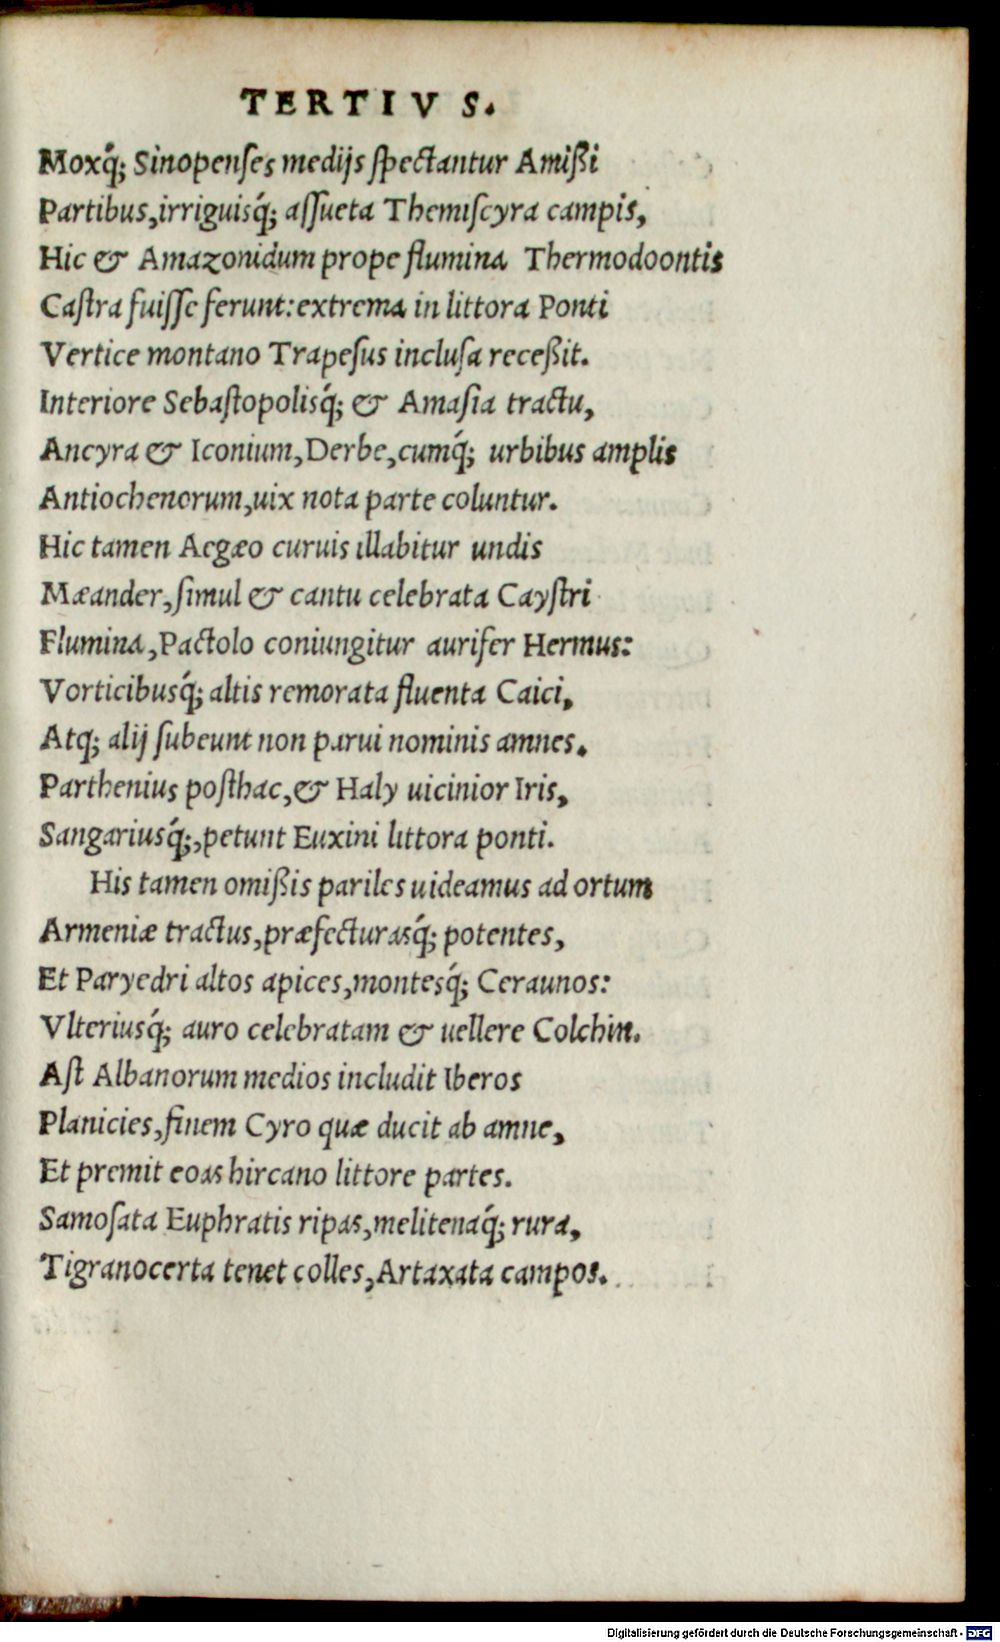 TERTIVS.
Moxq́; Sinopenſes medijs ſpectantur Amißi
Partibus, irriguisq́; aſſueta Themiſcyra campis,
Hic & Amazonidum prope flumina Thermodoontis
Caſtra fuiſſe ferunt: extrema in littora Ponti
Vertice montano Trapeſus incluſa receßit.
Interiore Sebaſtopolisq́; & Amaſia tractu,
Ancyra & Iconium, Derbe, cumq́; urbibus amplis
Antiochenorum, uix nota parte coluntur.
Hic tamen Aegæo curuis illabitur undis
Mæander, ſimul & cantu celebrata Cayſtri
Flumina, Pactolo coniungitur aurifer Hermus:
Vorticibusq́; altis remorata fluenta Caici,
Atq; alij ſubeunt non parui nominis amnes.
Parthenius poſthac, & Haly uicinior Iris,
Sangariusq́;, petunt Euxini littora ponti.
His tamen omißis pariles uideamus ad ortum
Armeniæ tractus, præfecturasq́; potentes,
Et Paryedri altos apices, montesq́; Ceraunos:
Vlteriusq́; auro celebratam & uellere Colchin.
Aſt Albanorum medios includit Iberos
Planicies, finem Cyro quæ ducit ab amne,
Et premit eoas hircano littore partes.
Samoſata Euphratis ripas, melitenaq́; rura,
Tigranocerta tenet colles, Artaxata campos.
Digitalisierung gefördert durch die Deutsche Forschungsgemeinschaft - DFG